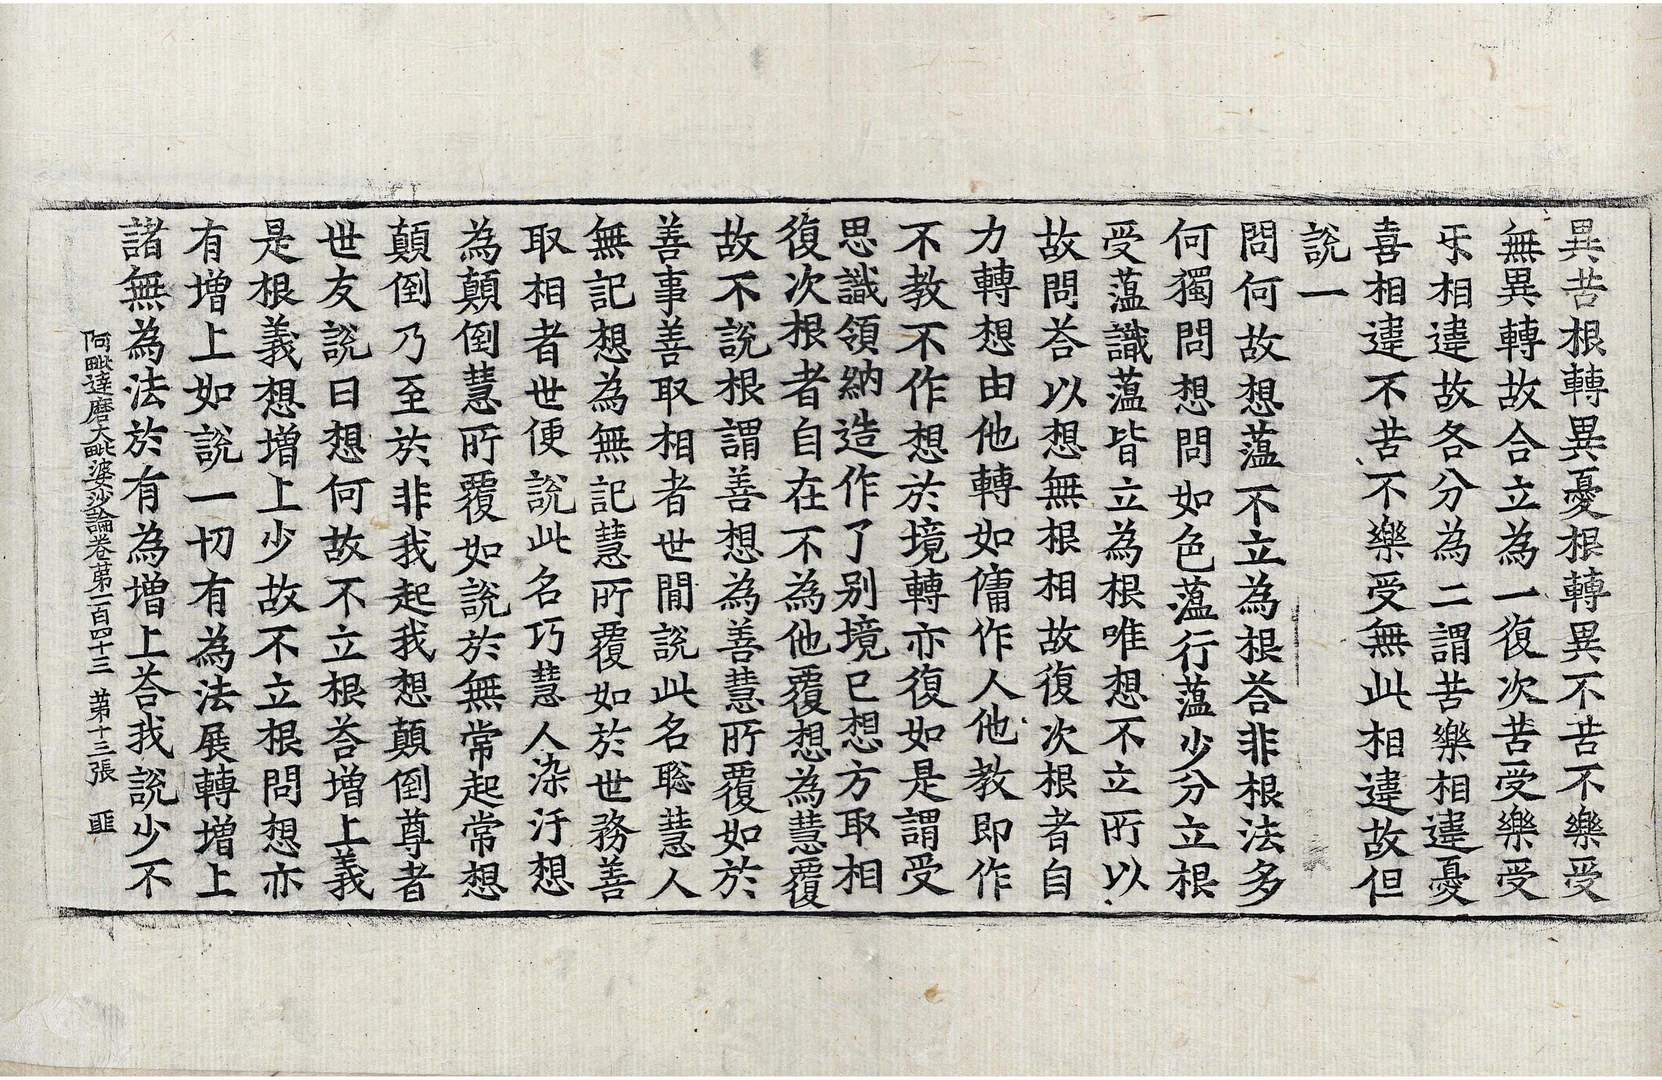 異苦根轉異憂根轉異不苦不樂受
無異轉故合立為一復次苦受樂受
乐相違故各分為二謂苦樂相違憂
喜相違不苦不樂受無此相違故但
說一
問何故想蘊不立為根荅非根法多
何獨問想問如色蘊行蘊少分立根
受蘊識蘊皆立為根唯想不立所以
故問荅以想無根相故復次根者自
力轉想由他轉如傭作人他教即作
不教不作想於境轉亦復如是謂受
思識領納造作了别境已想方取相
復次根者自在不為他覆想為慧覆
故不說根謂善想為善慧所覆如於
善事善取相者世間說此名聡慧人
無記想為無記慧所覆如於世務善
取相者世便說此名巧慧人染汙想
為顛倒慧所覆如說於無常起常想
顛倒乃至於非我起我想顛倒尊者
世友說曰想何故不立根荅增上義
是根義想增上少故不立根問想亦
有增上如說一切有為法展轉增上
諸無為法於有為增上荅我說少不
阿毗達磨大毗婆沙論卷苐一百四十三 苐十三張 匪